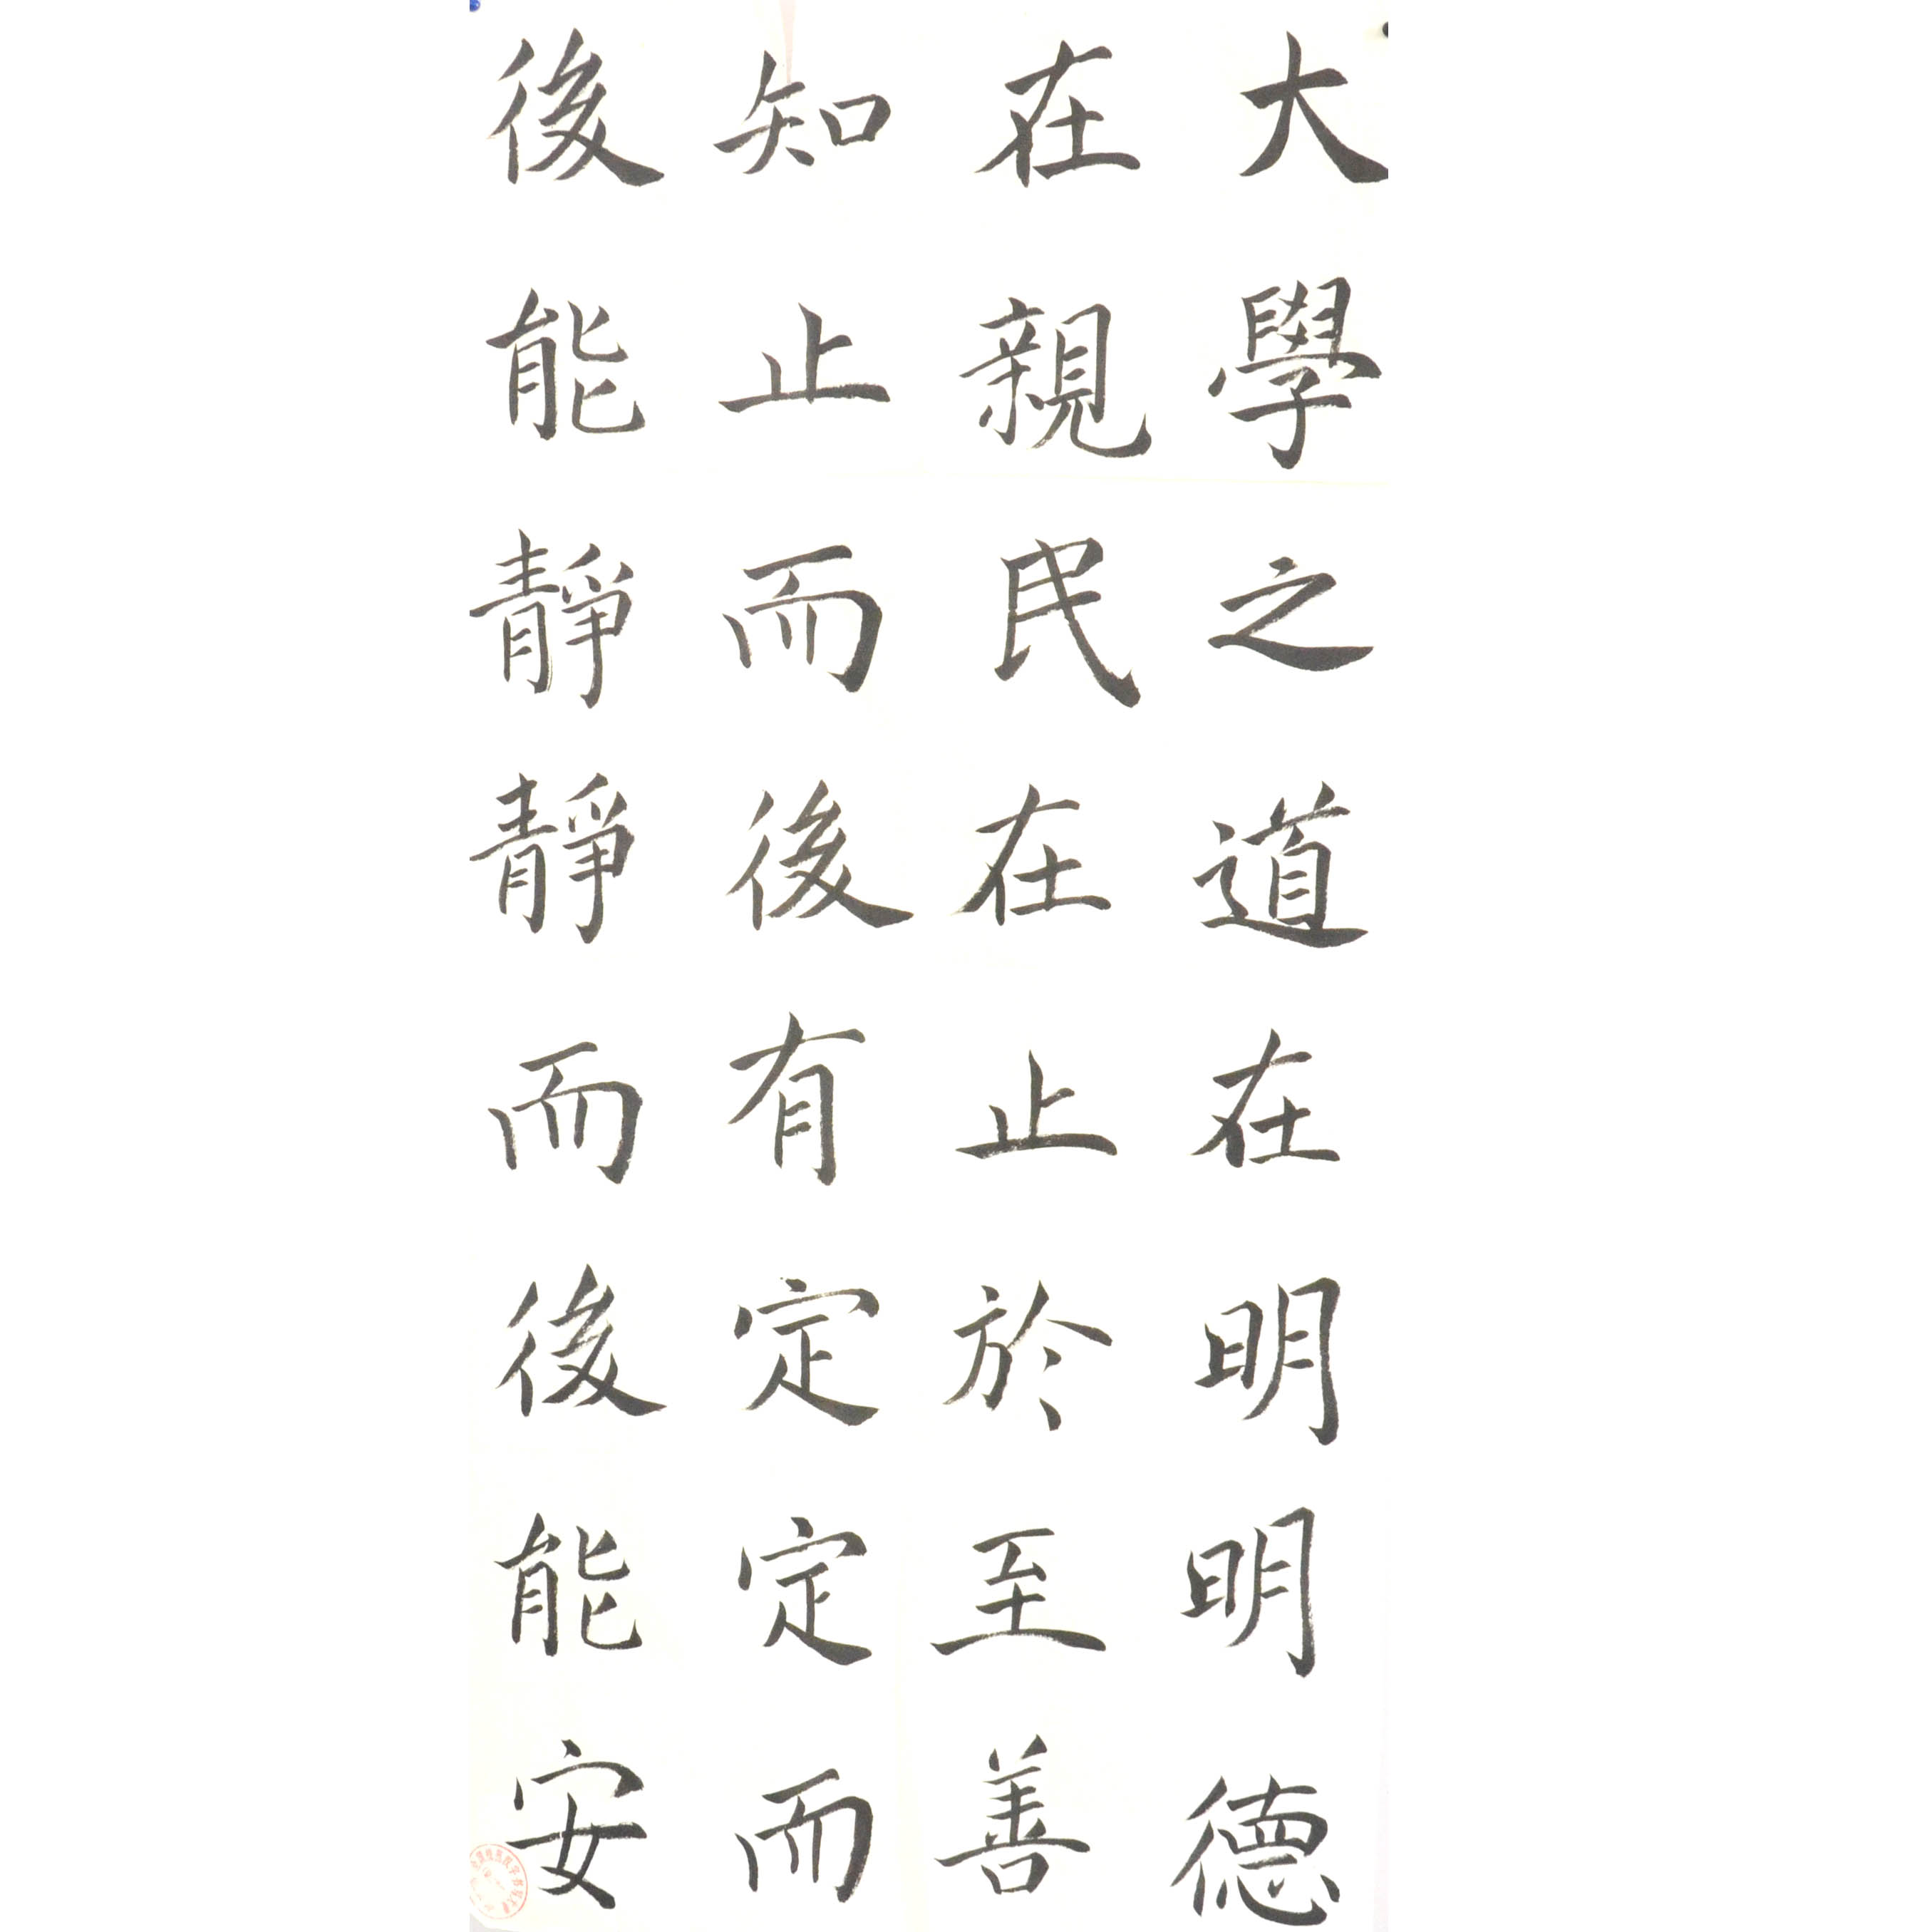 大學之道在明明德
在親民在止於至善
知止而後有定定而
後能靜靜而後能安